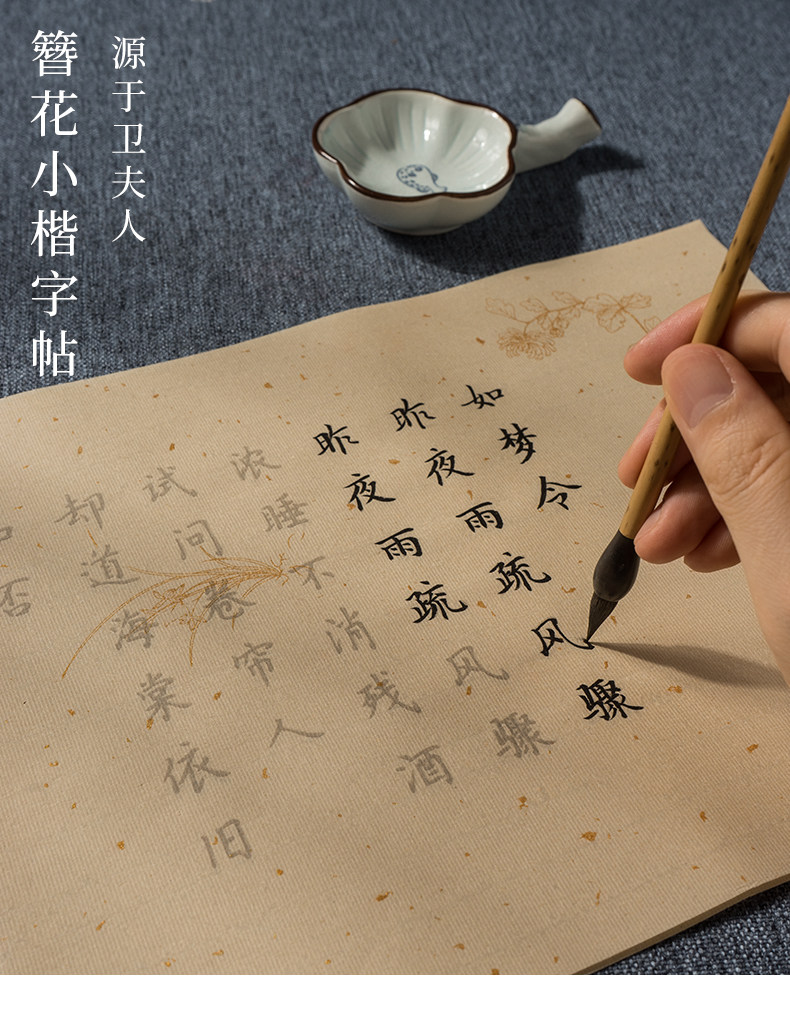 簪花小楷字帖
源于卫夫人
如梦令
昨夜雨疏风骤
昨夜雨疏风骤
浓睡不消残酒
试问卷帘人
却道海棠依旧
否